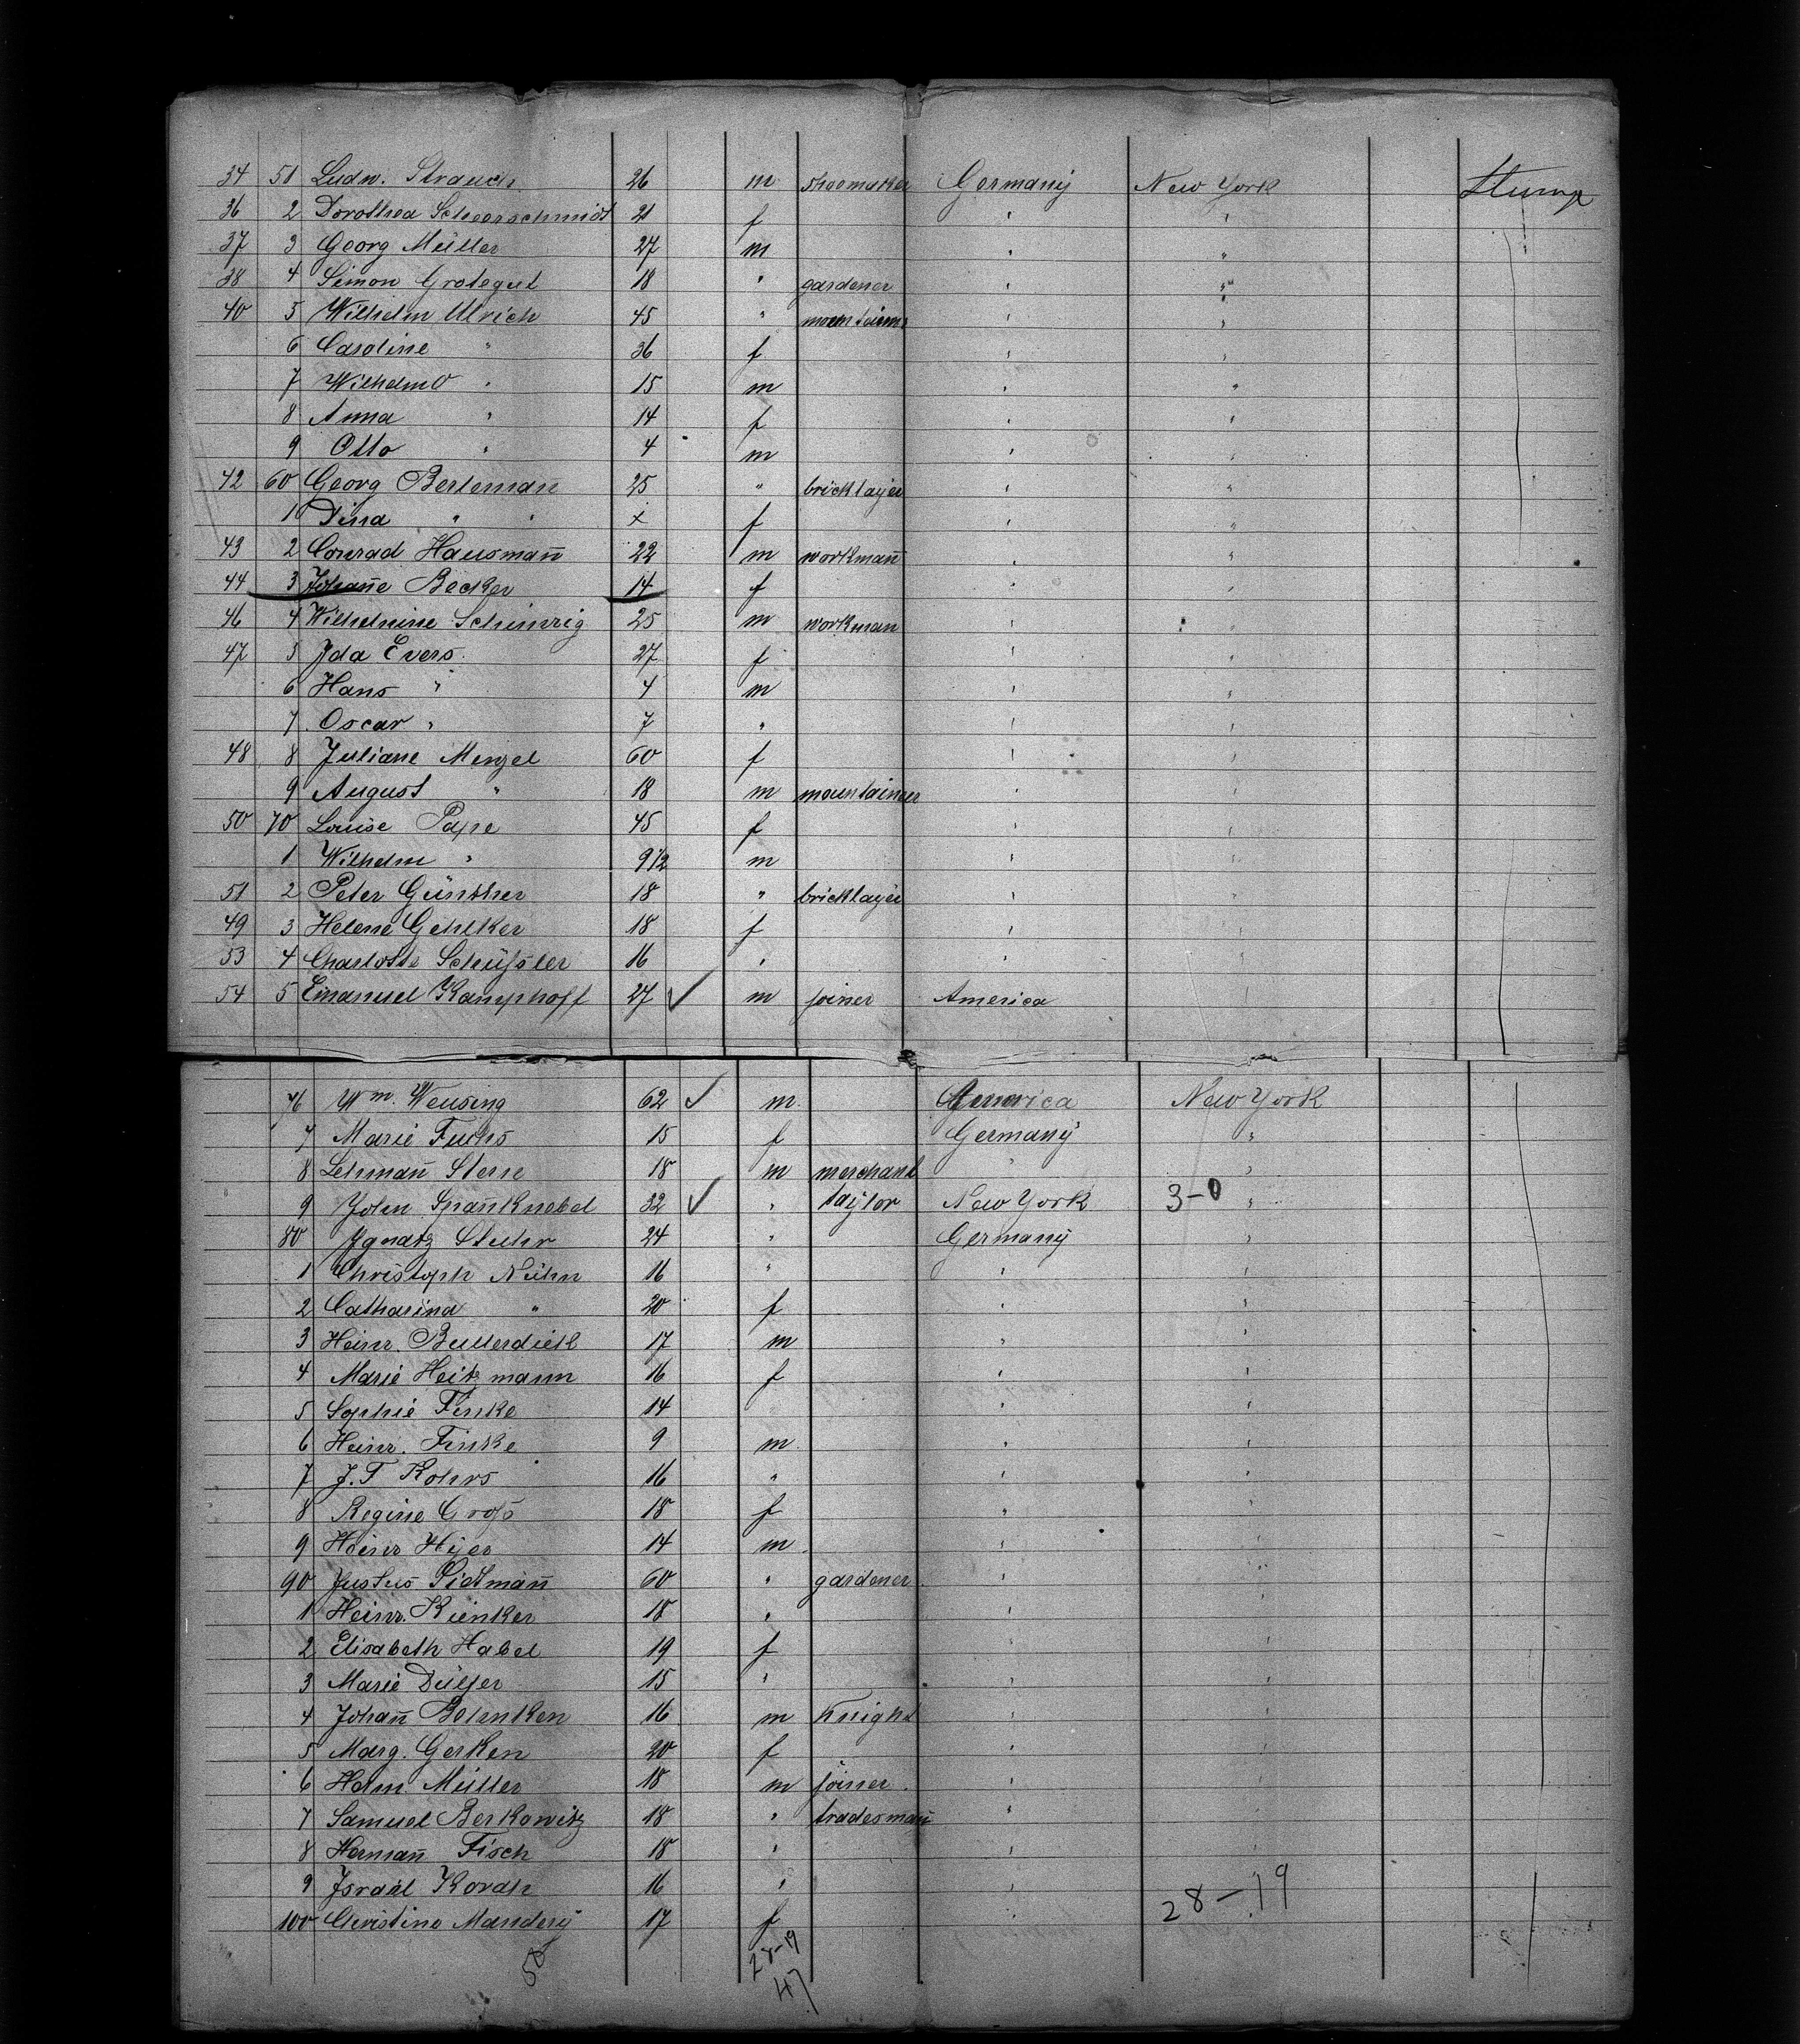 34 51 Ludw. Strauch 26 m shoemaker Germany New York Steerage
36 2 Dorothea Scheerschmidt 21 f " "
37 3 Georg Müller 27 m " "
38 4 Simon Grotegut 18 " gardener " "
40 5 Wilhelm Ulrich 45 " mountainer " "
6 Caroline " 36 f " "
7 Wilhelm " 15 m " "
8 Anna " 14 f " "
9 Otto " 4 m " "
42 60 Georg Berleman 25 " bricklayer " "
1 Dina " " x f " "
43 2 Conrad Hausmañ 22 m workmañ " "
44 3 Johañe Becker 14 f " "
46 4 Wilhelmine Schimrig 25 m workman " "
47 5 Ida Evers 27 f " "
6 Hans " 4 m " "
7 Oscar " 7 " " "
48 8 Juliane Menzel 60 f " "
9 August " 18 m mountainer " "
50 70 Louise Pape 45 f " "
1 Wilhelm " 9 1/2 m " "
51 2 Peter Günther 18 " bricklayer " "
49 3 Helene Gehlker 18 f " "
53 4 Charlotte Schüßler 16 " " "
54 5 Emanuel Kamphoff 27 ✓ m joiner America "
76 Wm. Wensing 62 ✓ m America New York
7 Marie Fuchs 15 f Germany "
8 Lehmañ Stern 18 m merchant " "
9 John Spañknebel 32 ✓ " taylor New York 3-0 "
80 Ignatz Stuhr 24 " Germany "
1 Christoph Nühn 16 " " "
2 Catharina " 20 f " "
3 Heinr. Bullerdieck 17 m " "
4 Marie Heitzmann 16 f " "
5 Sophie Finke 14 " "
6 Heinr. Finke 9 m " "
7 J. F Kohrs 16 " " "
8 Regine Groß 18 f " "
9 Heinr Heyer 14 m " "
90 Justus Sidmañ 60 " gardener " "
1 Heinr. Kienker 18 " " "
2 Elisabeth Habel 19 f " "
3 Marie Dülfer 15 " " "
4 Johañ Behnken 16 m Knight " "
5 Marg. Gerken 20 f " "
6 Herm. Müller 18 m joiner " "
7 Samuel Berkowitz 18 " tradesmañ " "
8 Hermañ Fisch 18 " " "
9 Israel Korath 16 " " "
28-19
100 Christine Mandery 17 f "
50 28-19
47